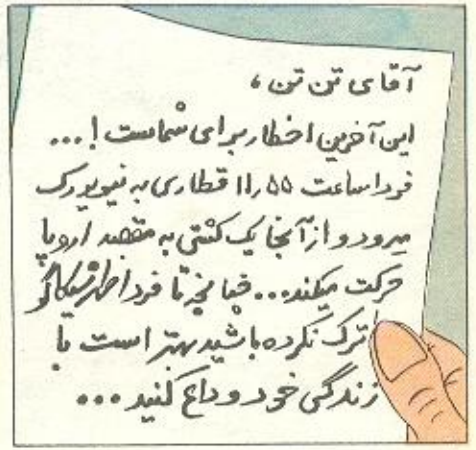 آقای تن تن ،
این آخرین اخطار برای شماست !...
فردا ساعت ۱۱٫۵۵ قطاری به نیویورک
میرود و از آنجا یک کشتی به مقصد اروپا
حرکت میکند... چنانچه تا فردا ظهر شیکاگو
را ترک نکرده باشید بهتر است با
زندگی خود وداع کنید ...